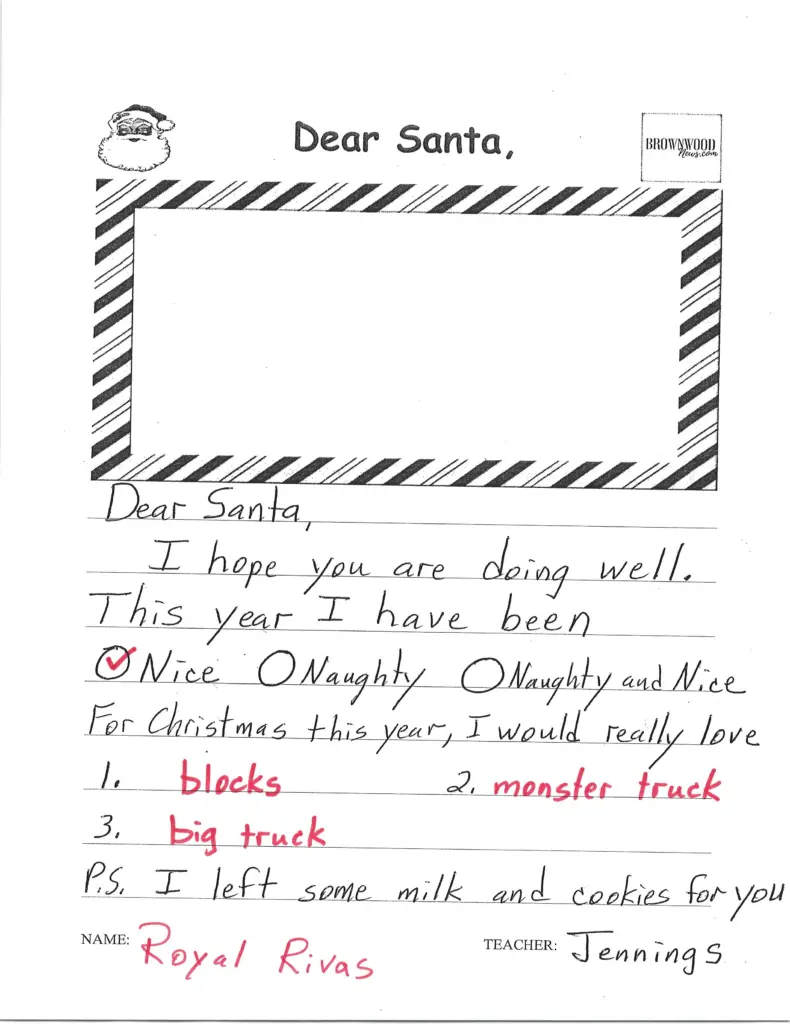 Dear Santa,
BROWNWOOD
News.com
Dear Santa,
I hope you are doing well.
This year I have been
Nice Naughty Naughty and Nice
For Christmas this year, I would really love
1. blocks 2. monster truck
3. big truck
P.S. I left some milk and cookies for you
NAME: Royal Rivas TEACHER: Jennings